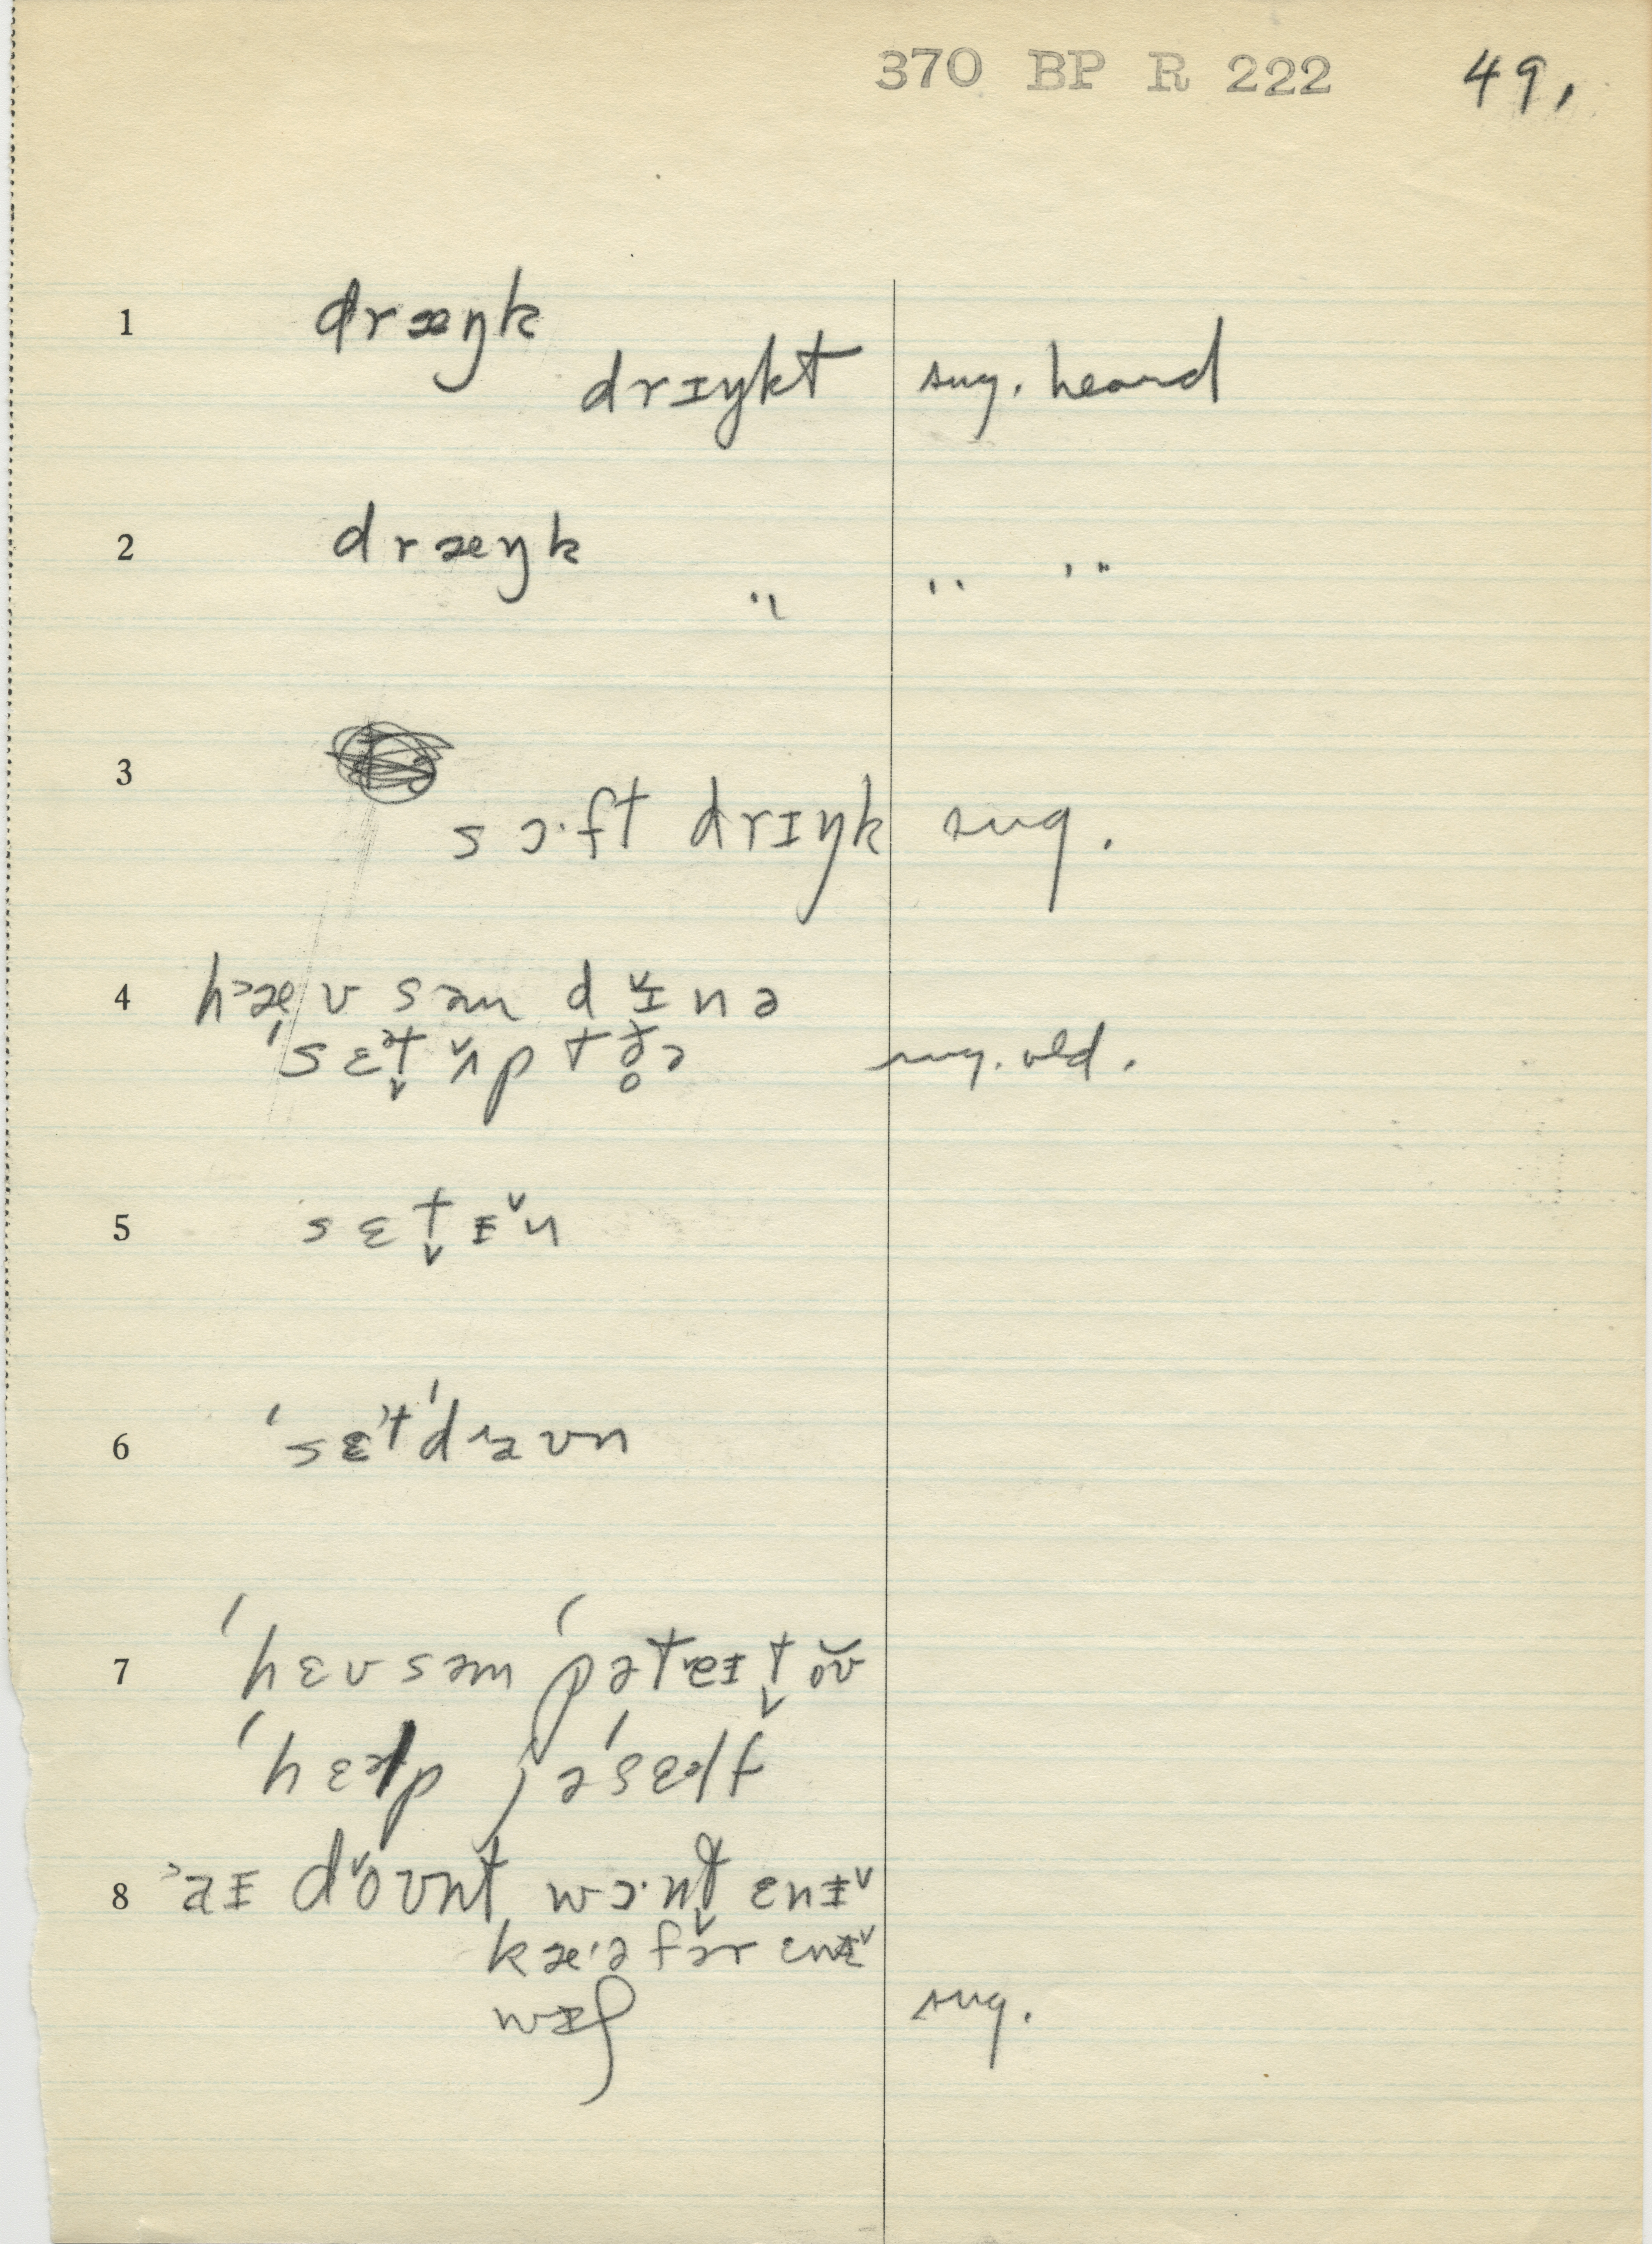 370 BP R 222 49,
1 dræŋk
drɪŋkt sug. heard
2 dræŋk
" " "
3
sɔ·ft drɪŋk sug.
4 hæv səm dɪnə
sug. old.
5 sɛt̬ ɪ̌n
6 ˈsɛᵊtˈdaʊn
7 ˈhɛv səm pəˈteɪt̬ə̌ʊ
ˈhɛəlp jəˈsɛəlf
8 aɪ dǒʊnt wɔ·nt̬ ɛnɪ̌
kæ·ə fə̌r ɛnɪ̌
wɪʃ sug.